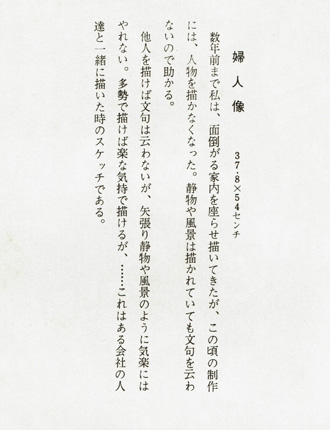 婦人像　37・8×54センチ
数年前まで私は、面倒がる家内を座らせ描いてきたが、この頃の制作
には、人物を描かなくなった。静物や風景は描かれていても文句を云わ
ないので助かる。
他人を描けば文句は云わないが、矢張り静物や風景のように気楽には
やれない。多勢で描けば楽な気持で描けるが、……これはある会社の人
達と一緒に描いた時のスケッチである。